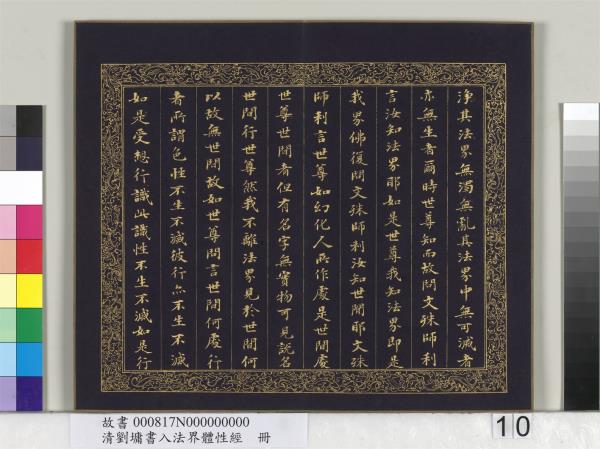 淨其法界無濁無亂其法界中無可滅者
亦無生者爾時世尊知而故問文殊師利
言汝知法界耶如是世尊我知法界即是
我界佛復問文殊師利汝知世間耶文殊
師利言世尊如幻化人所作處是世間處
世尊世間者但有名字無實物可見說名
世間行世尊然我不離法界見於世間何
以故無世間故如世尊問言世間何處行
者所謂色性不生不滅彼行亦不生不滅
如是受想行識此識性不生不滅如是行
故書 000817N000000000
清劉墉書入法界體性經 冊
10